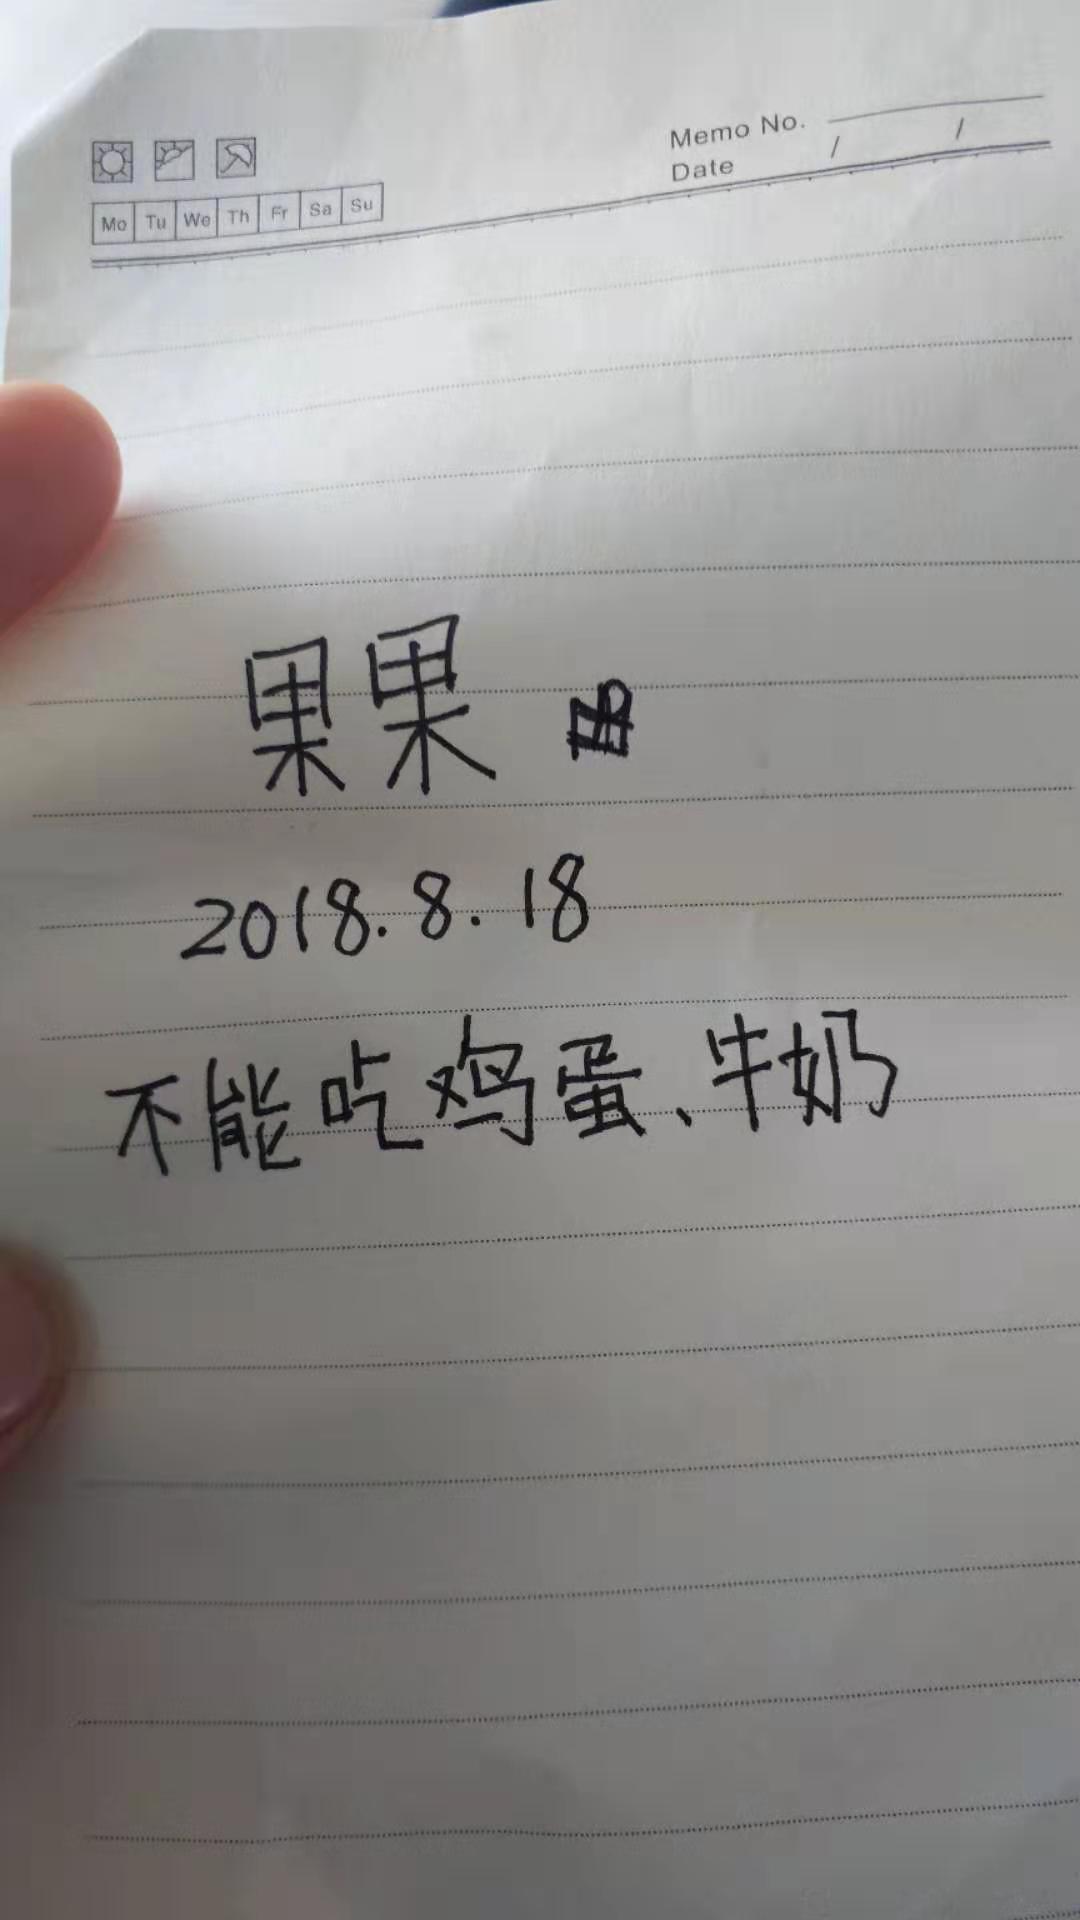 Memo No.
Date / /
Mo Tu We Th Fr Sa Su
果果
2018.8.18
不能吃鸡蛋、牛奶